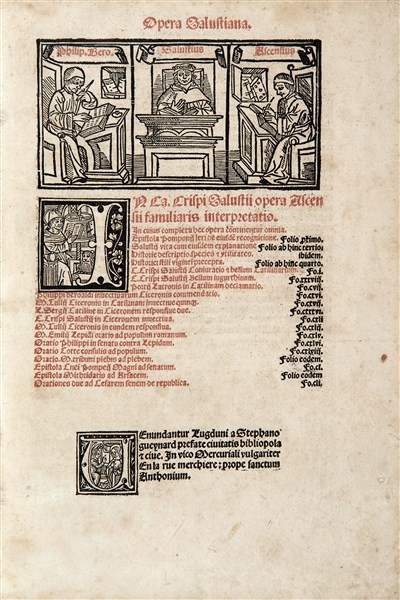 Opera Salustiana.
Philip. Bero.
Salustius
Ascensius
IN Ca. Crispi Salustii opera Ascen
sii familiaris interpretatio.
In cuius complexu hec opera continentur omnia.
Epistola Pomponij leti de eiusdē recognitione. Folio primo.
Salustij vita cum eiusdem explanatione Folio ab hinc tertio
Historie descriptio species & vtilitates. ibidem.
Historici stili vigneti precepta. Folio ab hinc quarto.
C. Crispi Salustij Coniuratio & bellum Catilinarium. Fo.i.
C. Crispi Salustij Bellum iugurthinum. Fo.xxxviii.
Porcij Latronis in Catilinam declamatio. Fo.
Philippi beroaldi inuectiuarum Ciceronis commendatio. Fo.cxvi.
M. Tullij Ciceronis in Catilinam inuectiue quinq. Fo.cxvi.
L. Sergij Catiline in Ciceronem responsiue due. Fo.cxxxvi
C. Crispi Salustij in Ciceronem inuectiua. Fo.cxli
M. Tullij Ciceronis in eundem responsiua. Fo.cxlii.
M. Emilij Lepidi oratio ad populum romanum. Fo.cxliv.
Oratio Philippi in senatu contra Lepidum. Fo.cxlvi.
Oratio Cotte consulis ad populum. Fo.cxlviii.
Oratio M. tribuni plebis ad plebem. Folio eodem.
Epistola Cneij Pompeij Magni ad senatum. Fo.cl.
Epistola Mithridatis ad Arsacem. Folio eodem
Orationes due ad Cesarem senem de republica. Fo.cli.
VEnundantur Lugduni a Stephano
gueynard prefate ciuitatis bibliopola
& ciue. In vico Mercuriali vulgariter
En la rue merchiere: prope sanctum
Anthonium.